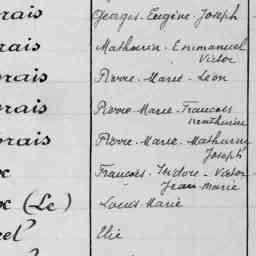 rais Georges-Eugène-Joseph
rais Mathurin-Emmanuel
Victor
rais Pierre-Marie-Léon
rais Pierre-Marie-Francois
Mathurin
rais Pierre-Marie-Mathurin
Joseph
x François-Isidore-Victor
Jean Marie
x (Le) Louis Marie
el Elie